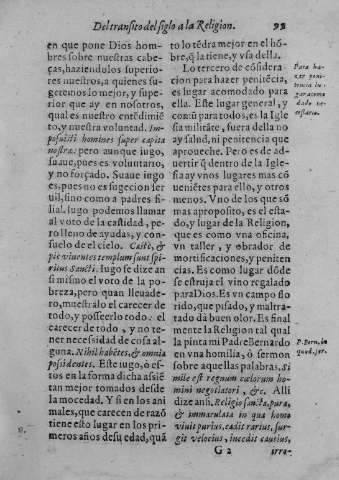 Del transito del siglo a la Religion. 99
en que pone Dios hom-
bres sobre nuestras cabe-
ças, haziendolos superio-
res nuestros, a quienes su-
getemos lo mejor, y supe-
rior que ay en nosotros,
qual es nuestro entẽdimiẽ
to, y nuestra voluntad. Im-
posuisti homines super capita
nostra: pero aunque iugo,
suaue, pues es voluntario,
y no forçado. Suaue iugo
es, pues no es sugecion ser
uil, sino como a padres fi-
lial. Iugo podemos llamar
al voto de la castidad, pe-
ro lleno de ayudas, y con-
suelo de el cielo. Castè, &
piè viuentes templum sunt spi
ritus Sancti. Iugo se dize an
si mismo el voto de la po-
breza, pero quan lleuade-
ro, muestralo el carecer de
todo, y posseerlo todo: el
carecer de todo, y no te-
ner necessidad de cosa al-
guna. Nihil habẽtes, & omnia
possidentes. Este iugo, ò es-
tos en la forma dicha assiẽ
tan mejor tomados desde
la mocedad. Y si en los ani
males, que carecen de razõ
tiene esto lugar en los pri-
meros años de su edad, quã
to lo tẽdra mejor en el hõ-
bre, q̃ la tiene, y vsa della.
Lo tercero de cõsidera-
cion para hazer penitẽcia,
es lugar acomodado para
ella. Este lugar general, y
comũ para todos, es la Igle
sia militãte, fuera della no
ay salud, ni penitencia que
aproueche. Pero es de ad-
uertir q̃ dentro de la Igle-
sia ay vnos lugares mas cõ
ueniẽtes para ello, y otros
menos. Vno de los que sõ
mas aproposito, es el esta-
do, y lugar de la Religion,
que es como vna oficina,
vn taller, y obrador de
mortificaciones, y peniten
cias. Es como lugar dõde
se estruja el vino regalado
para Dios. Es vn campo flo
rido, que pisado, y maltra-
tado dà buen olor. Es final
mente la Religion tal qual
la pinta mi Padre Bernardo
en vna homilia, ò sermon
sobre aquellas palabras. Si
mile est regnum cælorum ho-
mini negotiatori, &c. Alli
dize ansi. Religio sancta, pura,
& immaculata in qua homo
viuit purius, cadit rarius, sur-
git velocius, incedit cautius,
G 2 irro-
Para ha-
zer peni
tencia lu-
gar acomo
dado ne-
cessario.
D. Bern. in
quod. ser.